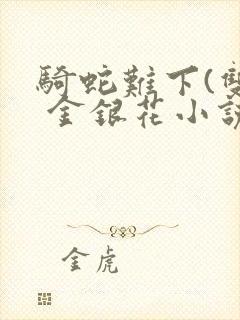 騎蛇難下(雙
金銀花小說
金虎